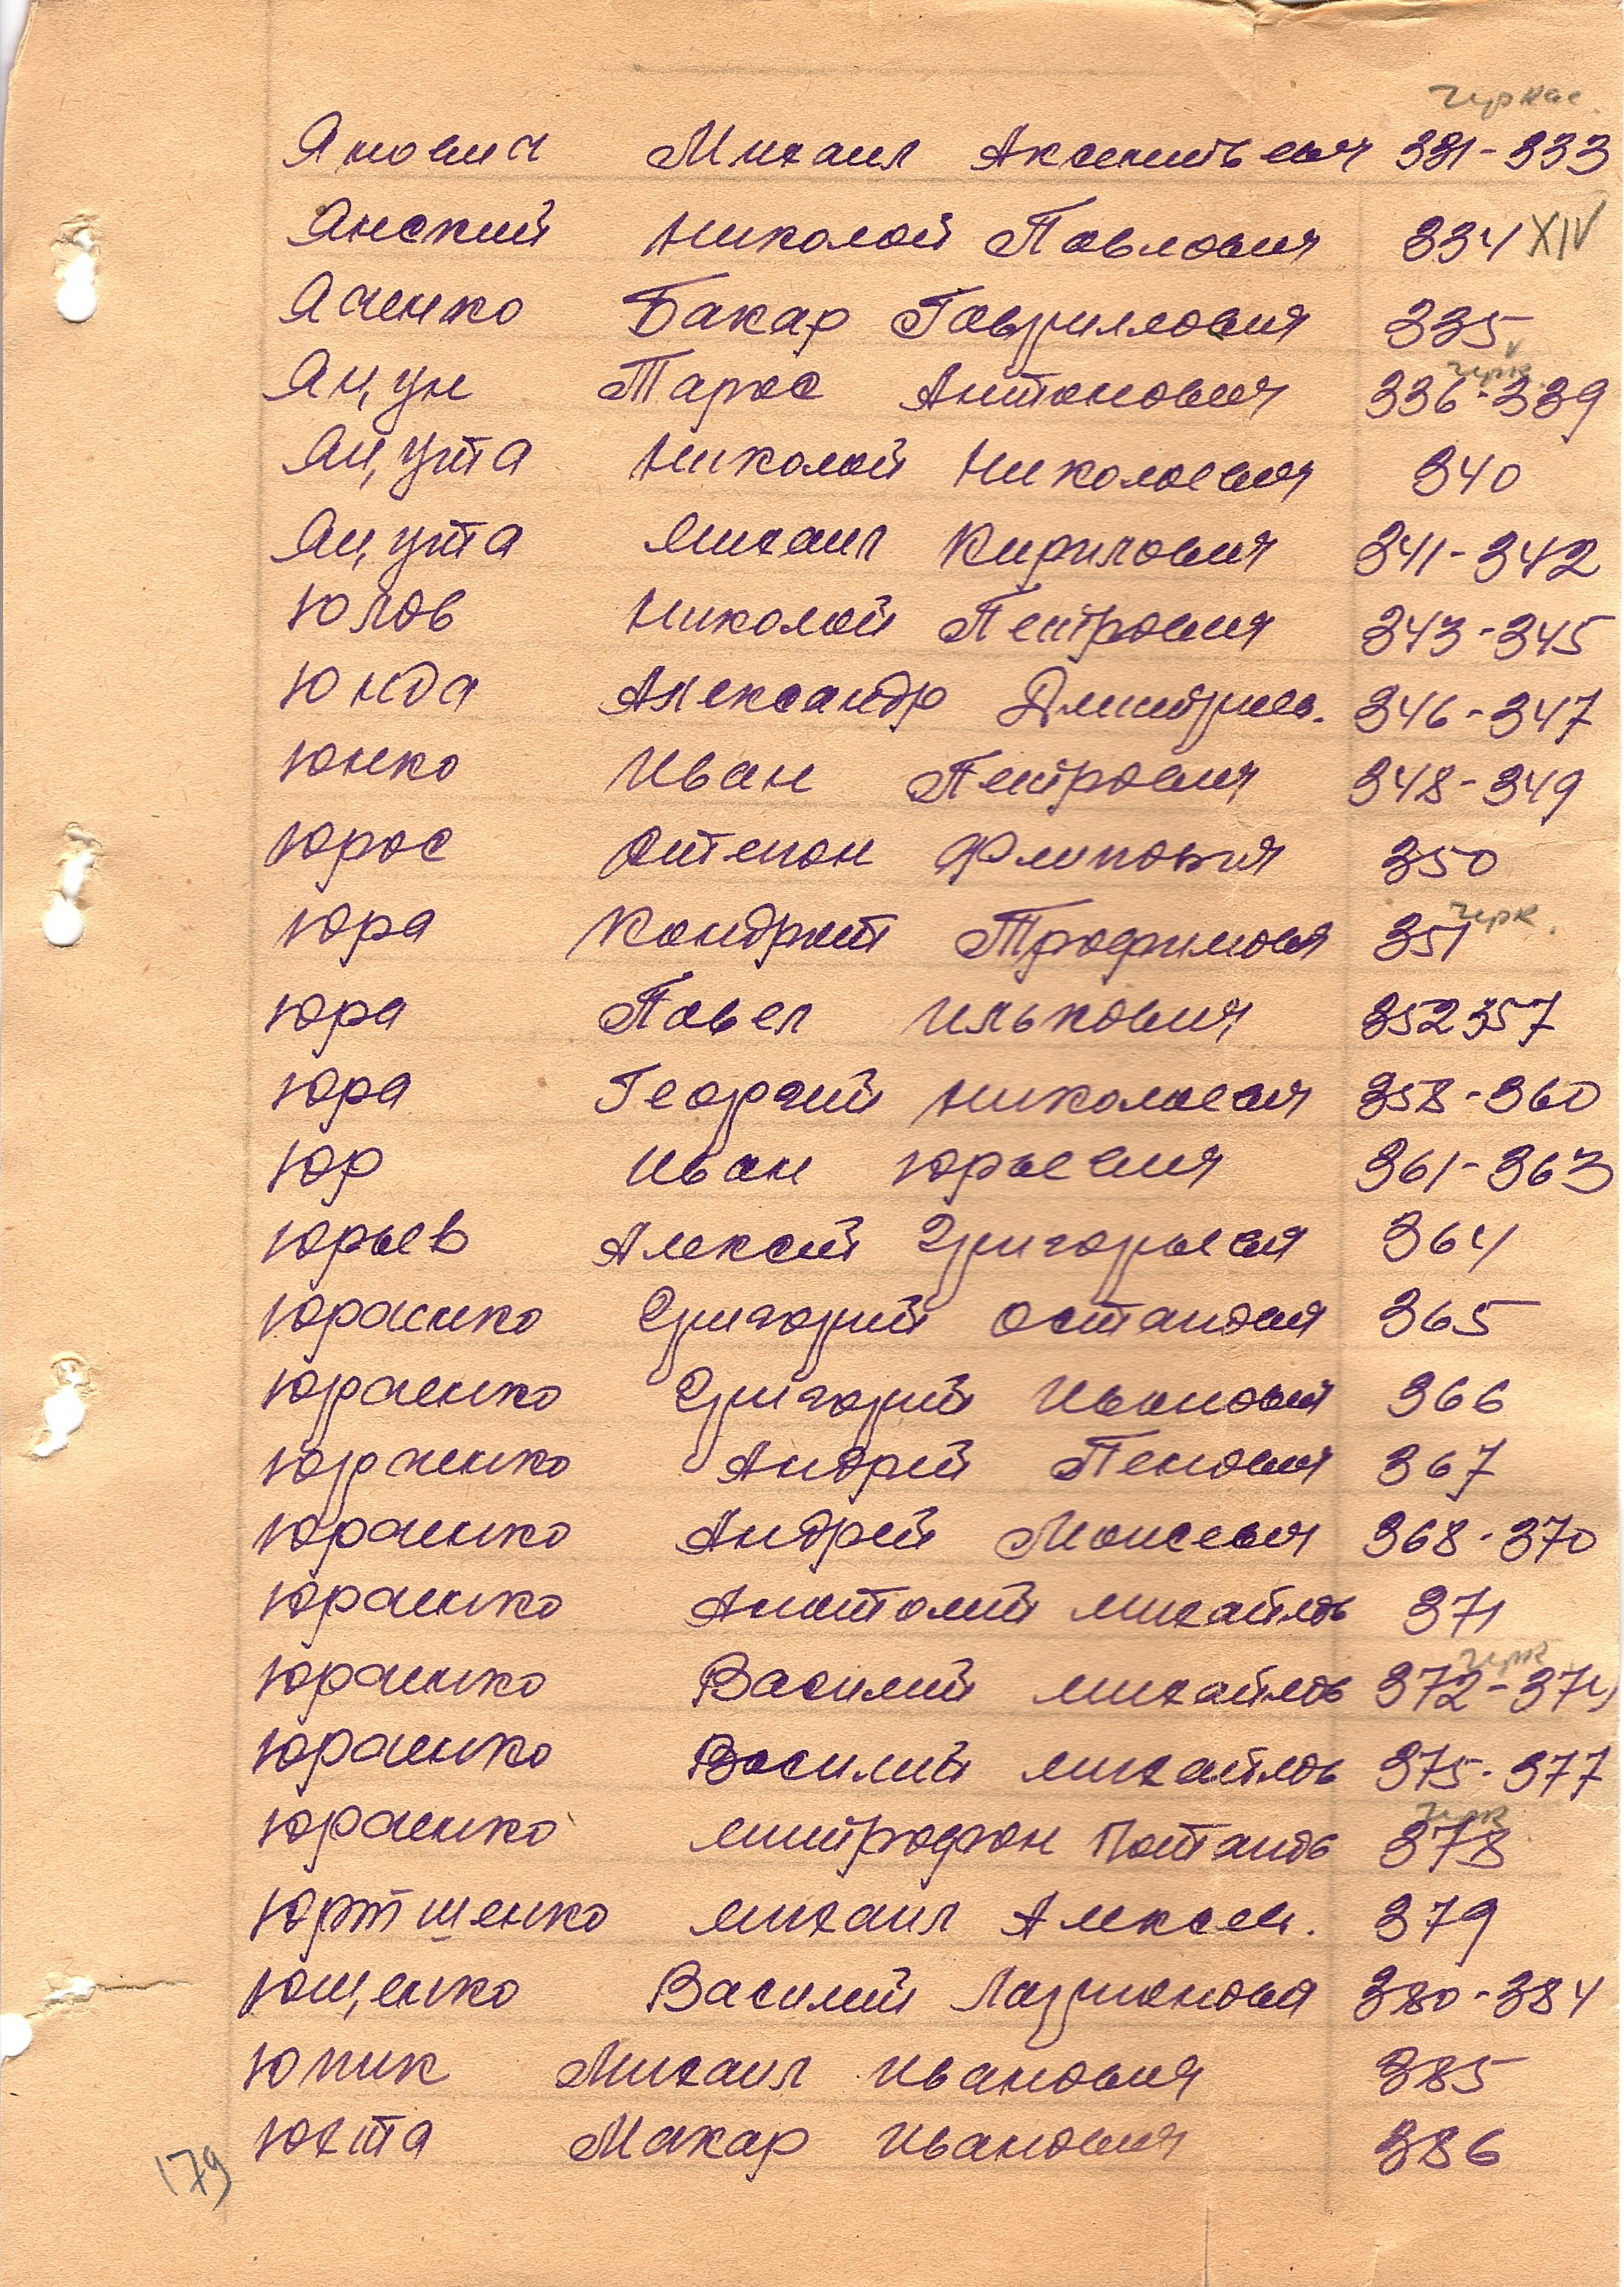 Черкас.
Янович Михаил Аксентьевич 331-333
Янский Николай Павлович 334 XIV
Яченко Бакар Гавриилович 335
Яцун Тарас Антонович 336-339
черк.
Яцута Николай Николаевич 340
Яцута Михаил Кирилович 341-342
Юлов Николай Петрович 343-345
Юнда Александр Дмитриев. 346-347
Юнко Иван Петрович 348-349
Юрос Антепон Филипович 350
Юра Кондрат Трофимович 351 черк.
Юра Павел Илькович 352 357
Юра Георгий Николаевич 358-360
Юр Иван Юрьевич 361-363
Юрьев Алексей Григорьевич 364
Юрченко Григорий Остапович 365
Юрченко Григорий Иванович 366
Юрченко Андрей Пенович 367
Юрченко Андрей Моисеевич 368-370
Юрченко Анатолий Михайлов 371
черк
Юрченко Василий Михайлов 372-374
Юрченко Василий Михайлов 375-377
черк
Юрченко Митрофан Потапов 378
Юртшенко Михаил Алексеев. 379
Ющенко Василий Ларионович 380-384
Юпик Михаил Иванович 385
Юхта Макар Иванович 386
179